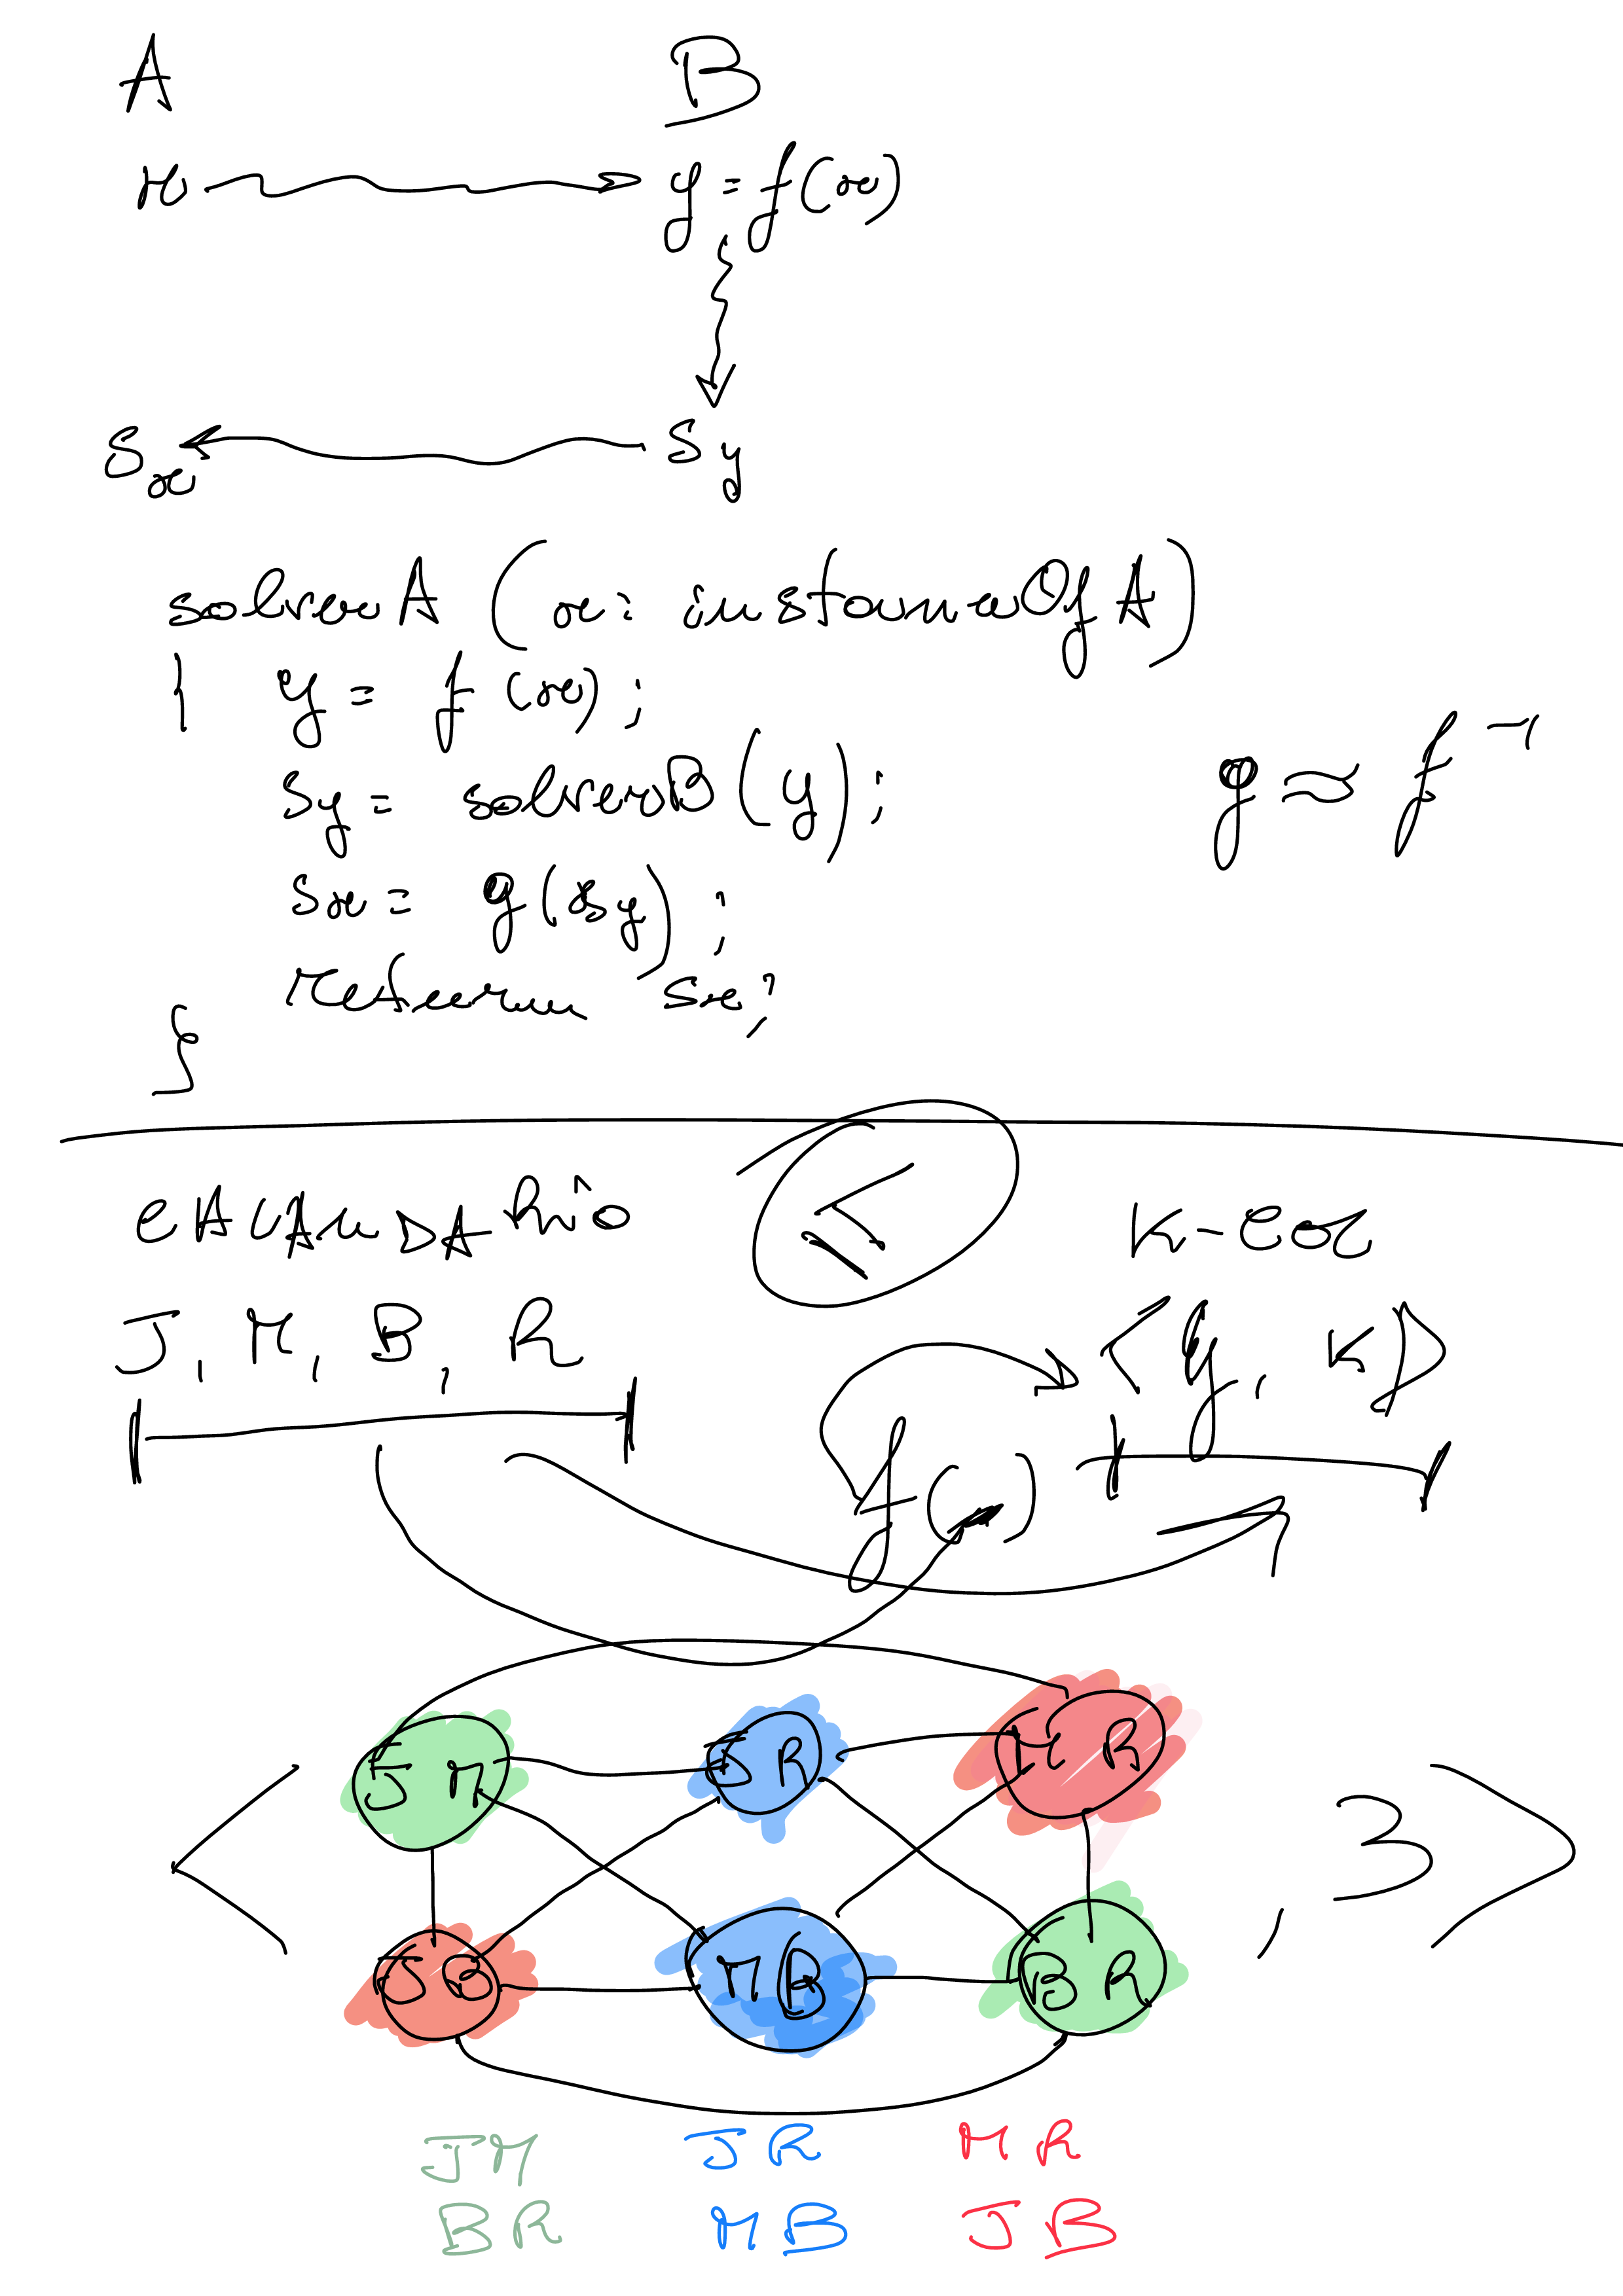 A B
x y = f(x)
Sx Sy
solverA (x: instanceOfA)
{ y = f(x);
Sy = solverB(y);
Sx = g(Sy);
return Sx;
}
g ≈ f⁻¹
≤ K-COL
J, M, B, R <G, K>
f( )
JM JR MR
< , 3 >
JB MB BR
JM JR MR
BR MB JB